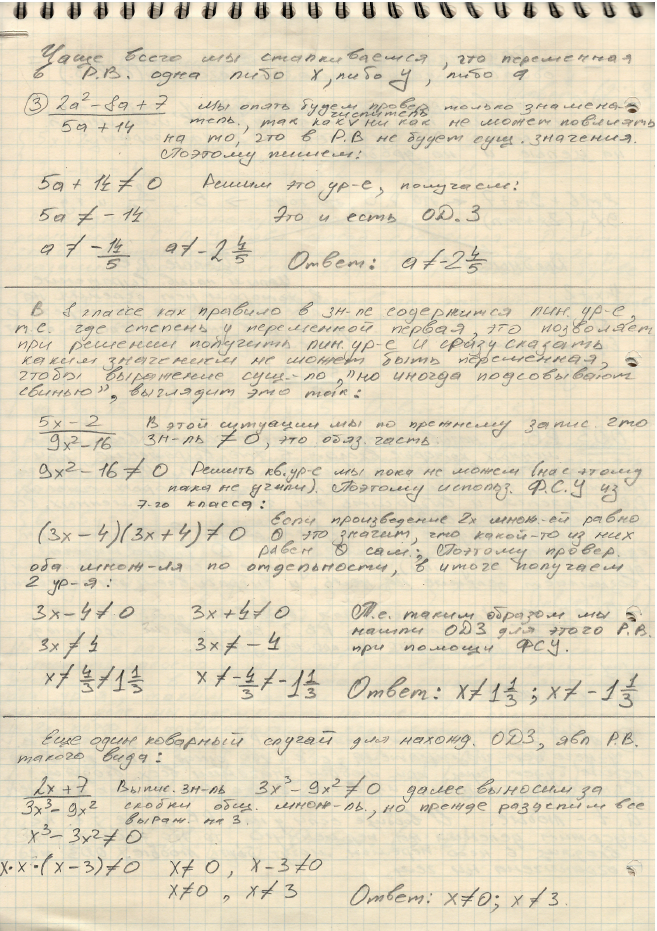 Чаще всего мы сталкиваемся, что переменная
в Р.В. одна либо x, либо y, либо a
③ (2a² – 8a + 7)/(5a + 14) мы опять будем провер. только знамена-
тель, так как числитель ни как не может повлиять
на то, что в Р.В не будет сущ. значения.
Поэтому пишем:
5a + 14 ≠ 0 Решим это ур-е, получаем:
5a ≠ –14 Это и есть ОД.З
a ≠ –14/5 a ≠ –2 4/5 Ответ: a ≠ –2 4/5
В 8 классе как правило в зн-ле содержится лин. ур-е,
т.е. где степень у переменной первая, это позволяет
при решении получить лин. ур-е и сразу сказать
каким значением не может быть переменная,
чтобы выражение сущ-ло, "но иногда подсовывают
свинью", выглядит это так:
(5x – 2)/(9x² – 16) В этой ситуации мы по прежнему запис. что
зн-ль ≠ 0, это обяз. часть.
9x² – 16 ≠ 0 Решить кв. ур-е мы пока не можем (нас этому
пока не учили). Поэтому использ. Ф.С.У из
7-го класса:
(3x – 4)(3x + 4) ≠ 0 Если произведение 2х множ-ей равно
0 это значит, что какой-то из них
равен 0 сам. Поэтому провер.
оба множ-ля по отдельности, в итоге получаем
2 ур-я:
3x – 4 ≠ 0 3x + 4 ≠ 0 Т.е. таким образом мы
3x ≠ 4 3x ≠ –4 нашли ОДЗ для этого Р.В.
при помощи ФСУ.
x ≠ 4/3 ≠ 1 1/3 x ≠ –4/3 ≠ –1 1/3 Ответ: x ≠ 1 1/3 ; x ≠ –1 1/3
Еще один коварный случай для нахожд. ОДЗ, явл Р.В.
такого вида:
(2x + 7)/(3x³ – 9x²) Выпис. зн-ль 3x³ – 9x² ≠ 0 далее выносим за
скобки общ. множ-ль, но прежде разделим все
выраж. на 3.
x³ – 3x² ≠ 0
x·x·(x – 3) ≠ 0 x ≠ 0, x – 3 ≠ 0
x ≠ 0, x ≠ 3 Ответ: x ≠ 0; x ≠ 3.